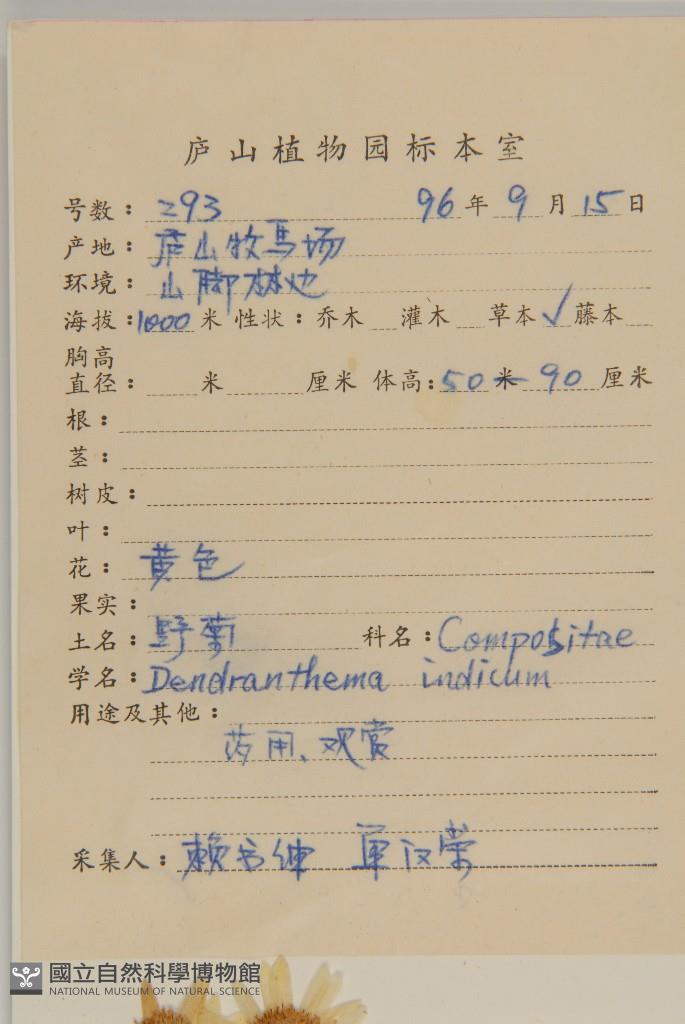 庐山植物园标本室
号数：293 96年9月15日
产地：庐山牧马场
环境：山脚林地
海拔：1000米 性状：乔木 灌木 草本√ 藤本
胸高
直径： 米 厘米 体高：50米-90厘米
根：
茎：
树皮：
叶：
花：黄色
果实：
土名：野菊 科名：Compositae
学名：Dendranthema indicum
用途及其他：
药用、观赏
采集人：赖书绅 单汉荣
國立自然科學博物館
NATIONAL MUSEUM OF NATURAL SCIENCE